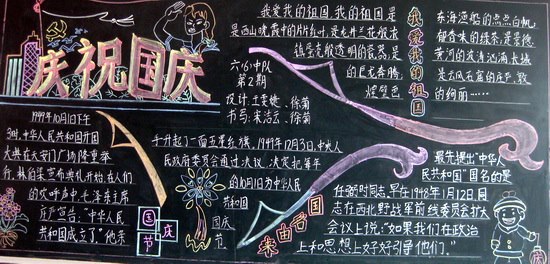 庆祝国庆
我爱我的祖国，我的祖国是
是西山晚霞中的片片红叶，是龙井兰花般浓
的巨龙奔腾，
六(6)中队
第2期
设计：王雯婕、徐菊
书写：宋洁云、徐菊
我爱我的祖国
东海渔船的点点白帆，
郁香味的绿茶，是景德
黄河的波涛汎满长城
是古凤石窟的庄严，敦
的绚丽……
1999年10月1日下午
3时，中华人民共和国开国
大典在天安门广场隆重举
行，林伯渠宣布典礼开始，在人们
的欢呼声中毛泽东主席
庄严宣告：“中华人民
共和国成立了。”他亲
国庆节
手升起了一面五星红旗，1949年12月3日，中央人
民政府委员会通过决议，决定把每年
的10月1日为中华人民
共和国
国庆
节
国名由来
最先提出“中华人
民共和国”国名的是
任弼时同志，早在1948年1月12日，同
志在西北野战军前线委员会扩大
会议上说：“如果我们在政治
上和思想上好好引导他们。”
庆